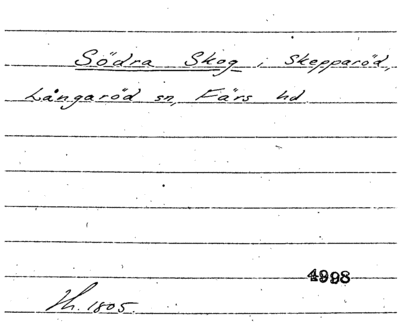 Södra Skog i Skepparöd,
Långaröd sn, Färs hd
4998
Th. 1805.